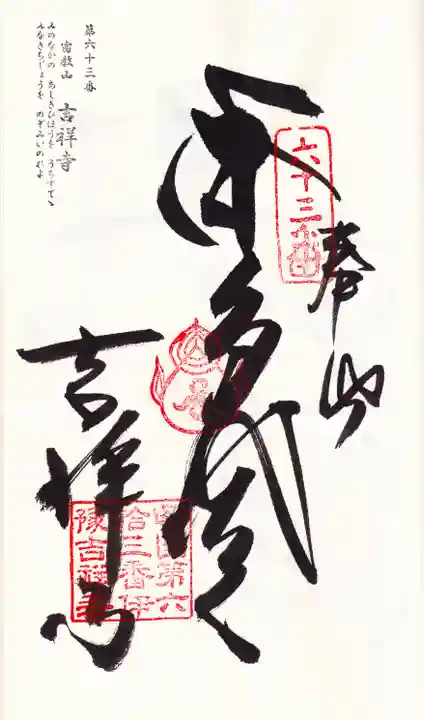 第六十三番
密教山 吉祥寺
みのなかの あしきひほうを うちすてゝ
みなきちじょうを のぞみいのれよ
六十三番
奉
吉祥寺
四国第六
拾三番伊
豫吉祥寺